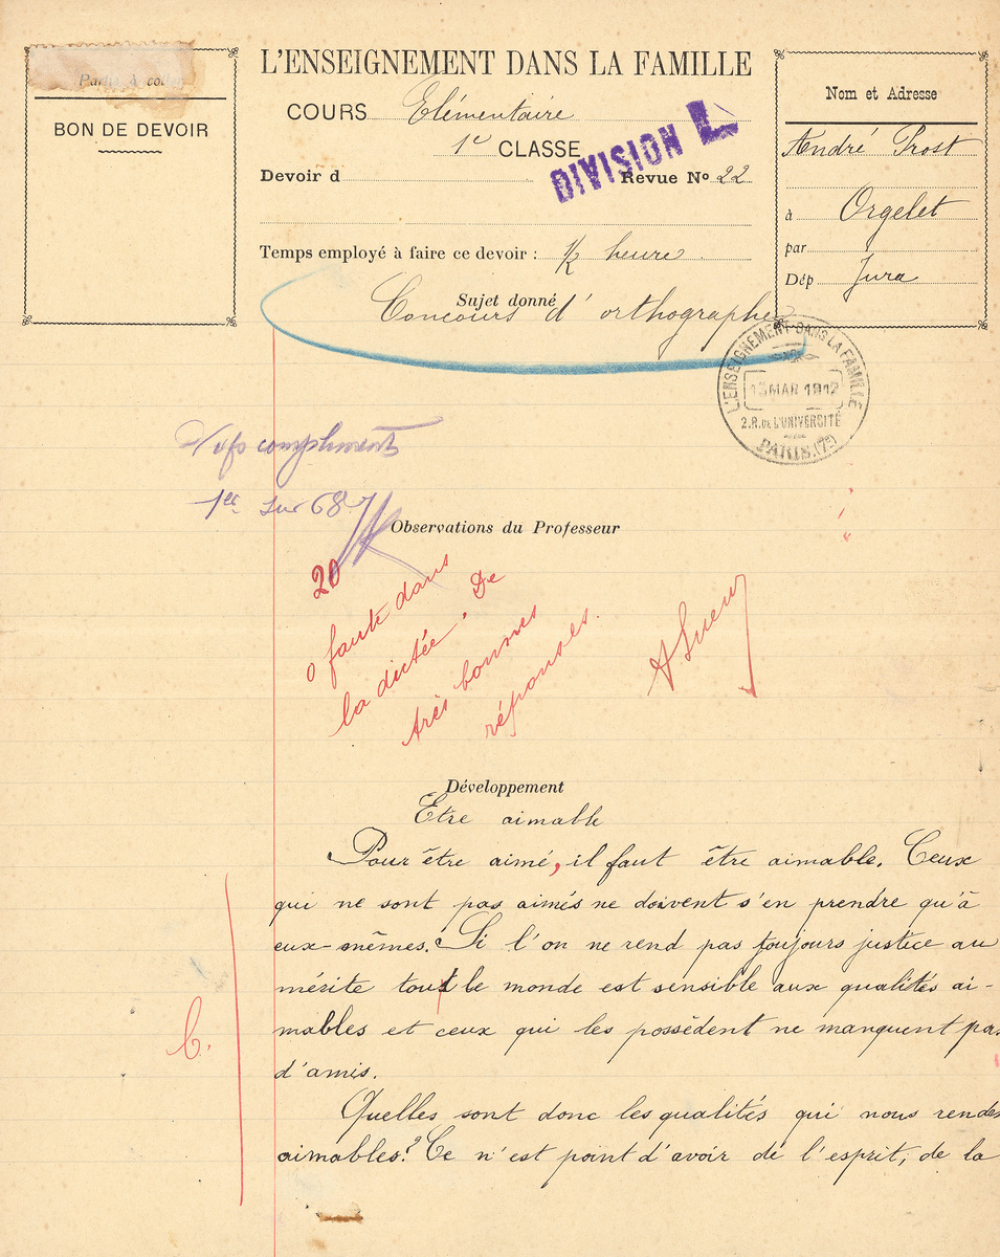 Partie à coller
BON DE DEVOIR
L'ENSEIGNEMENT DANS LA FAMILLE
COURS Elémentaire
1e CLASSE
DIVISION L
Devoir d Revue No 22
Temps employé à faire ce devoir : 1/2 heure
Sujet donné
Concours d'orthographe
Nom et Adresse
André Prost
à Orgelet
par
Dép Jura
L'ENSEIGNEMENT DANS LA FAMILLE
13 MAR 1912
2.R. DE L'UNIVERSITÉ
PARIS.(7e)
compliments
1er sur 687
Observations du Professeur
20
0 faute dans
la dictée. De
très bonnes
réponses
Développement
Etre aimable
Pour être aimé, il faut être aimable. Ceux
qui ne sont pas aimés ne doivent s'en prendre qu'à
eux-mêmes. Si l'on ne rend pas toujours justice au
mérite tout le monde est sensible aux qualités ai-
mables et ceux qui les possèdent ne manquent pas
d'amis.
b.
Quelles sont donc les qualités qui nous rendes
aimables? Ce n'est point d'avoir de l'esprit, de la